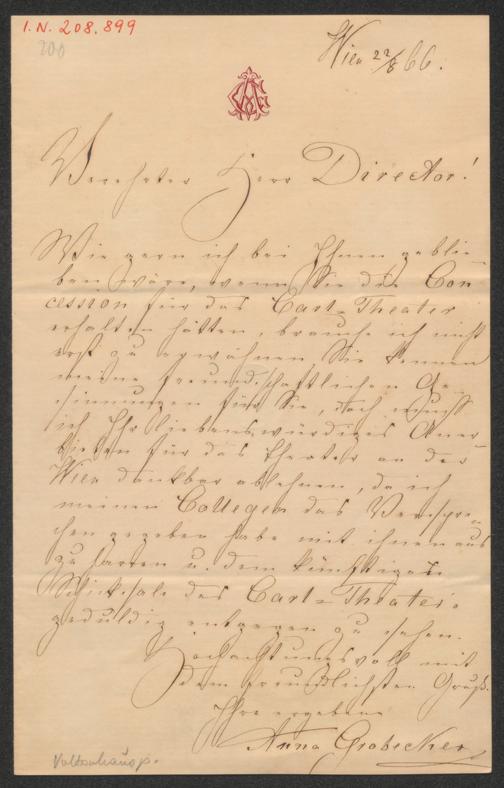 I. N. 208.899
200
Wien 22/8 66.
Verehrter Herr Director!
Wie gern ich bei Ihnen geblie-
ben wäre, wenn Sie die Con-
cession für das Carl-Theater
erhalten hätten, brauche ich nicht
erst zu erwähnen. Sie kennen
meine freundschaftlichen Ge-
sinnungen für Sie, doch muß
ich Ihr liebenswürdiges Aner-
bieten für das Theater an der
Wien dankbar ablehnen, da ich
meinen Collegen das Verspre-
chen gegeben habe mit ihnen aus
zu harren u. dem künftigen
Schicksale des Carl-Theaters
geduldig entgegen zu sehen.
Hochachtungsvoll mit
dem freundlichsten Gruß
Ihre ergebene
Anna Grobecker